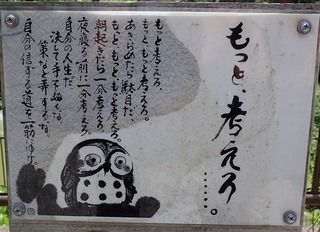 もっと、考えろ
……。
もっと考えろ。
もっともっと考えろ。
あきらめたら駄目だ、
もっと、もっと、もっと考えろ。
朝起きたら一分考えろ
夜寝る前に一分考えろ
自分の人生だ
決して手をぬくな。
策など弄するな。
自分の信ずる道を一筋にゆけ。